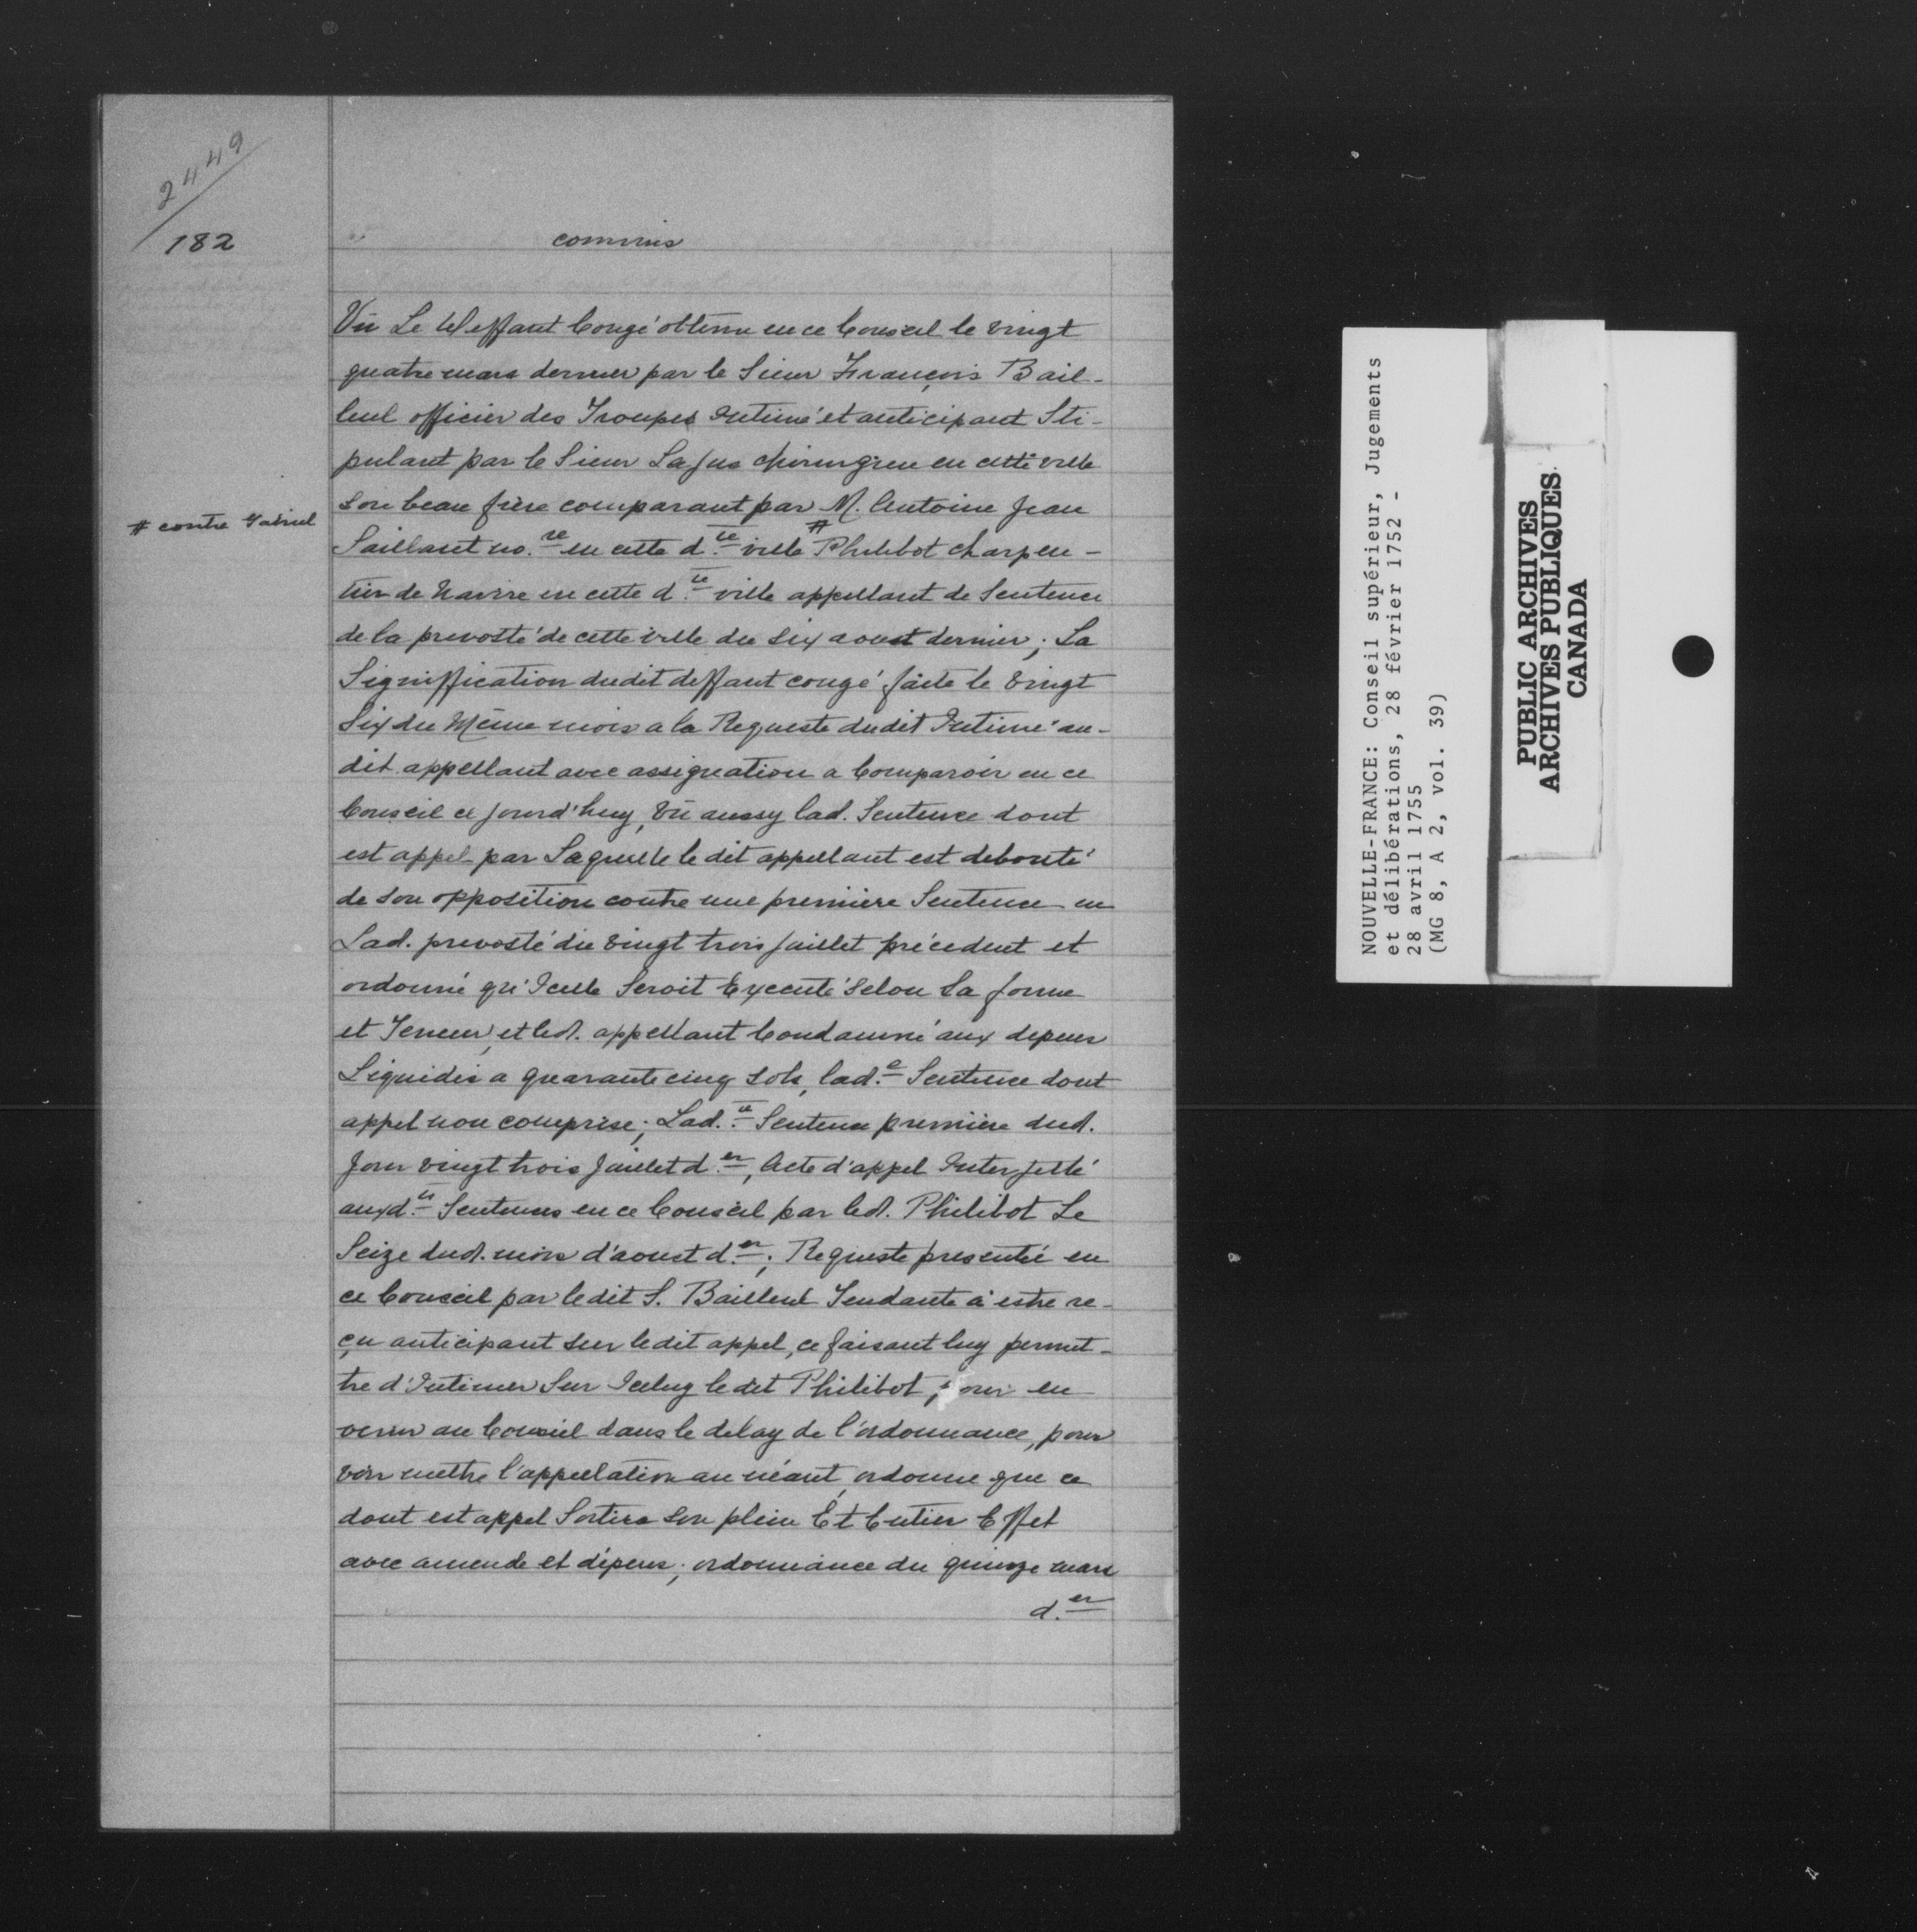 2449
182
commis
Vu Le Deffaut Congé obtenu en ce Conseil le vingt
quatre mars dernier par le Sieur François Bail-
leul officier des Troupes Intimé et anticipant Sti-
pulant par le Sieur Lajus chirurgien en cette ville
son beau frère comparant par M. Antoine Jean
# contre Gabriel
Saillant no.re en cette d.te ville # Philibot charpen-
tier de Navire en cette d.te ville appellant de Sentence
de la prevosté de cette ville du six aoust dernier; La
Signiffication dudit deffaut congé faite le vingt
Six du Même mois a la Requeste dudit Intimé au-
dit appellant avec assignation a Comparoir en ce
Conseil ce jourd'huy, Vû aussy lad. Sentence dont
est appel par Laquelle le dit appellant est debouté
de son opposition contre une première Sentence en
Lad. prevosté du vingt trois juillet précedent et
ordonné qu'Icelle Seroit Executé Selon Sa forme
et Teneur, et led. appellant Condamné aux depens
Liquidés a quarante cinq sols, lad.e Sentence dont
appel non comprise; Lad.te Sentence première dud.
jour vingt trois juillet d.er, Acte d'appel Interjetté
auxd.es Sentences en ce Conseil par led. Philibot Le
Seize dud. mois d'aoust d.er; Requeste presentée en
ce Conseil par ledit S. Bailleul Tendante à estre re-
çu anticipant sur ledit appel, ce faisant luy permet-
tre d'Intimer Sur Iceluy le dit Philibot, pour en
venir au Conseil dans le delay de l'ordonnance, pour
voir mettre l'appellation au néant, ordonne que ce
dont est appel Sortira son plein Et Entier Effet
avec amende et dépens; ordonnance du quinze mars
d.er
NOUVELLE-FRANCE: Conseil supérieur, Jugements
et délibérations, 28 février 1752 -
28 avril 1755
(MG 8, A 2, vol. 39)
PUBLIC ARCHIVES
ARCHIVES PUBLIQUES
CANADA